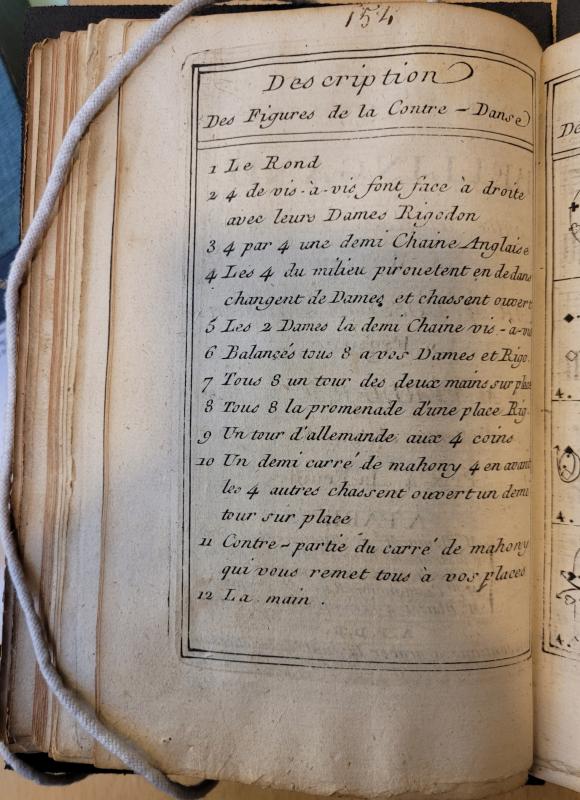 154
Description
Des Figures de la Contre - Danse
1 Le Rond
2 4 de vis-à-vis font face à droite
avec leurs Dames Rigodon
3 4 par 4 une demi Chaine Anglaise
4 Les 4 du milieu pirouetent en dedans
changent de Dames et chassent ouvert
5 Les 2 Dames la demi Chaine vis-à-vis
6 Balancés tous 8 a vos Dames et Rigo.
7 Tous 8 un tour des deux mains sur place
8 Tous 8 la promenade d'une place Rig
9 Un tour d'allemande aux 4 coins
10 Un demi carré de mahony 4 en avant
les 4 autres chassent ouvert un demi
tour sur place
11 Contre-partie du carré de mahony
qui vous remet tous à vos places
12 La main.
De
4.
4.
4.